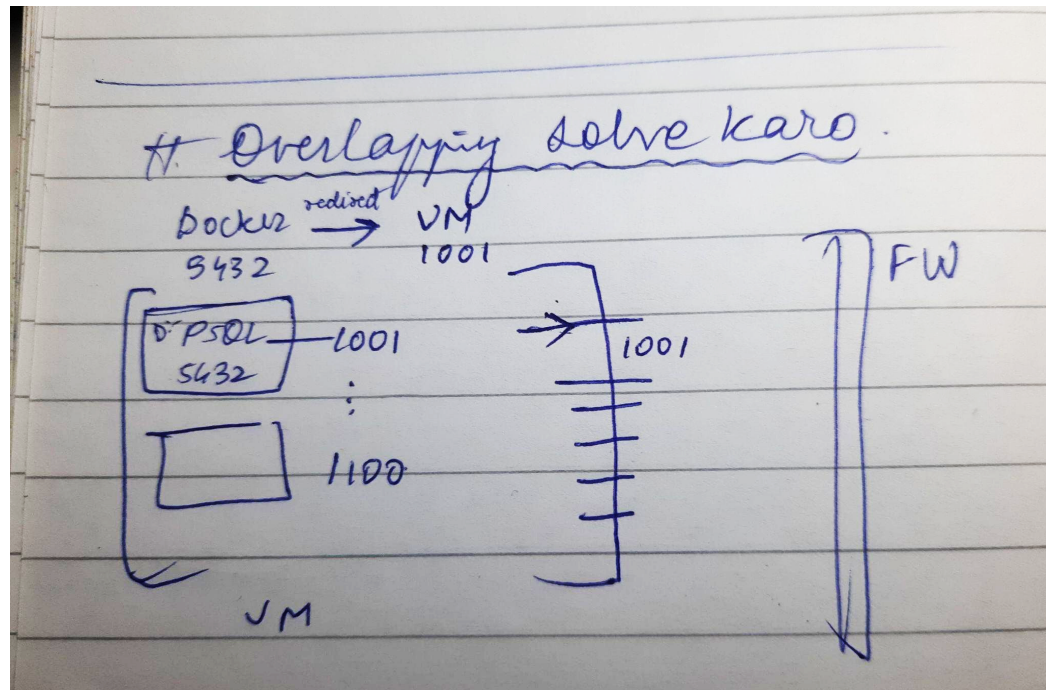 # Overlapping solve karo.
Docker redirect → VM
5432 1001
FW
D: PSQL 1001
5432
1001
:
1100
VM